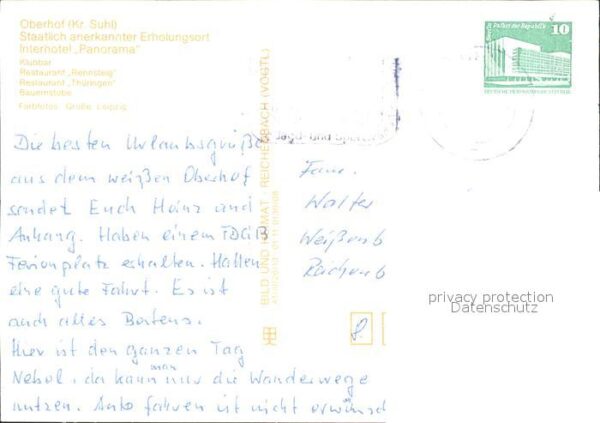 Oberhof (Kr. Suhl)
Staatlich anerkannter Erholungsort
Interhotel „Panorama"
Klubbar
Restaurant „Rennsteig"
Restaurant „Thüringen"
Bauernstube
Farbfotos: Große, Leipzig
Palast der Republik
10
DEUTSCHE DEMOKRATISCHE REPUBLIK
BILD UND HEIMAT REICHENBACH (VOGTL)
Die besten Urlaubsgrüße
aus dem weißen Oberhof
sendet Euch Heinz und
Anhang. Haben einem FDGB
Ferienplatz erhalten. Hatten
eine gute Fahrt. Es ist
auch alles Bestens.
Hier ist den ganzen Tag
Nebel, da kann man nur die Wanderwege
nutzen. Auto fahren ist nicht erwünsch
Fam.
Walter
Weißenb
Reichenb
8
privacy protection
Datenschutz